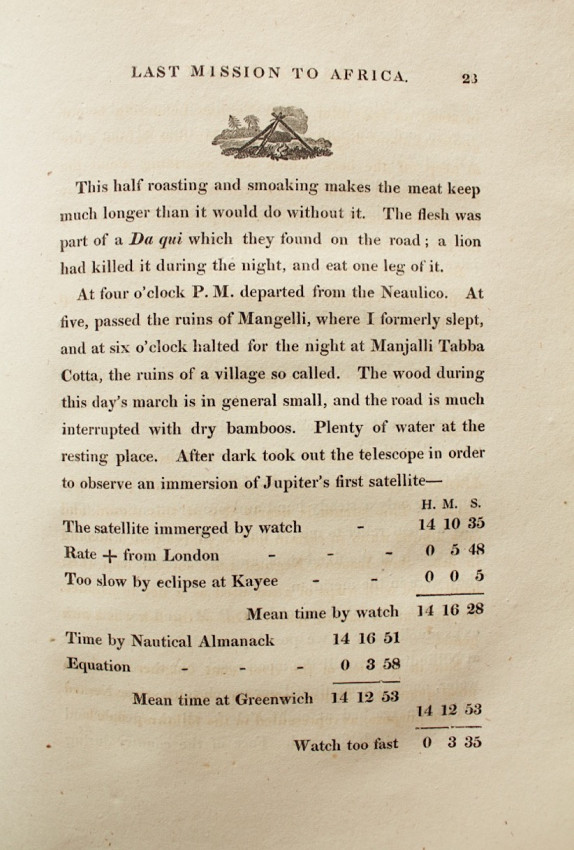 LAST MISSION TO AFRICA. 23
This half roasting and smoaking makes the meat keep
much longer than it would do without it. The flesh was
part of a Da qui which they found on the road; a lion
had killed it during the night, and eat one leg of it.
At four o'clock P. M. departed from the Neaulico. At
five, passed the ruins of Mangelli, where I formerly slept,
and at six o'clock halted for the night at Manjalli Tabba
Cotta, the ruins of a village so called. The wood during
this day's march is in general small, and the road is much
interrupted with dry bamboos. Plenty of water at the
resting place. After dark took out the telescope in order
to observe an immersion of Jupiter's first satellite—
H. M. S.
The satellite immerged by watch - 14 10 35
Rate + from London - - - 0 5 48
Too slow by eclipse at Kayee - - 0 0 5
Mean time by watch 14 16 28
Time by Nautical Almanack 14 16 51
Equation - - - 0 3 58
Mean time at Greenwich 14 12 53
14 12 53
Watch too fast 0 3 35